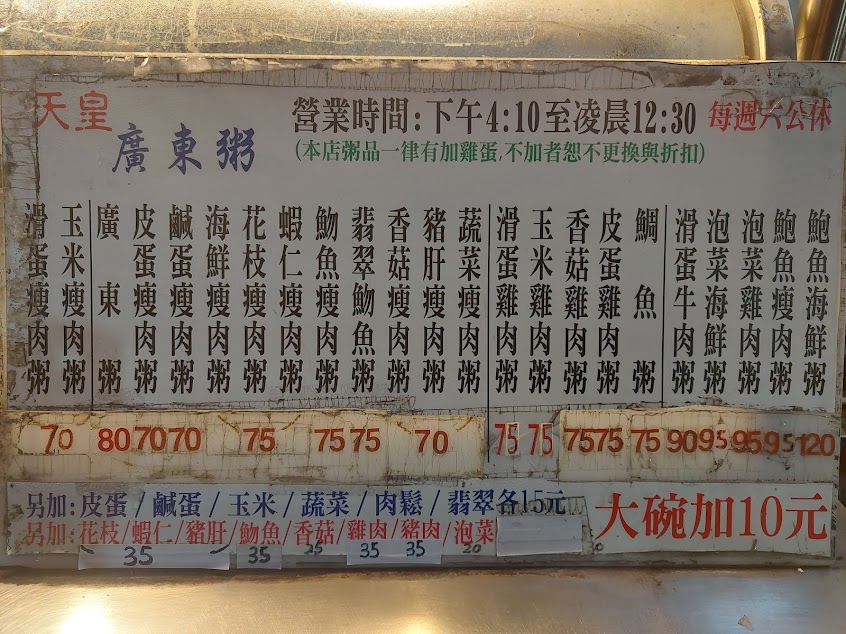 天皇
廣東粥
營業時間:下午4:10至凌晨12:30
每週六公休
(本店粥品一律有加雞蛋,不加者恕不更換與折扣)
滑蛋瘦肉粥
玉米瘦肉粥
廣東粥
皮蛋瘦肉粥
鹹蛋瘦肉粥
海鮮瘦肉粥
花枝瘦肉粥
蝦仁瘦肉粥
魩魚瘦肉粥
翡翠魩魚粥
香菇瘦肉粥
豬肝瘦肉粥
蔬菜瘦肉粥
滑蛋雞肉粥
玉米雞肉粥
香菇雞肉粥
皮蛋雞肉粥
鯛魚粥
滑蛋牛肉粥
泡菜海鮮粥
泡菜雞肉粥
鮑魚瘦肉粥
鮑魚海鮮粥
70 80 70 70 75 75 75 70 75 75 75 75 75 90 95 95 95 120
另加:皮蛋/鹹蛋/玉米/蔬菜/肉鬆/翡翠各15元
另加:花枝/蝦仁/豬肝/魩魚/香菇/雞肉/豬肉/泡菜
35 35 25 35 35 20
大碗加10元